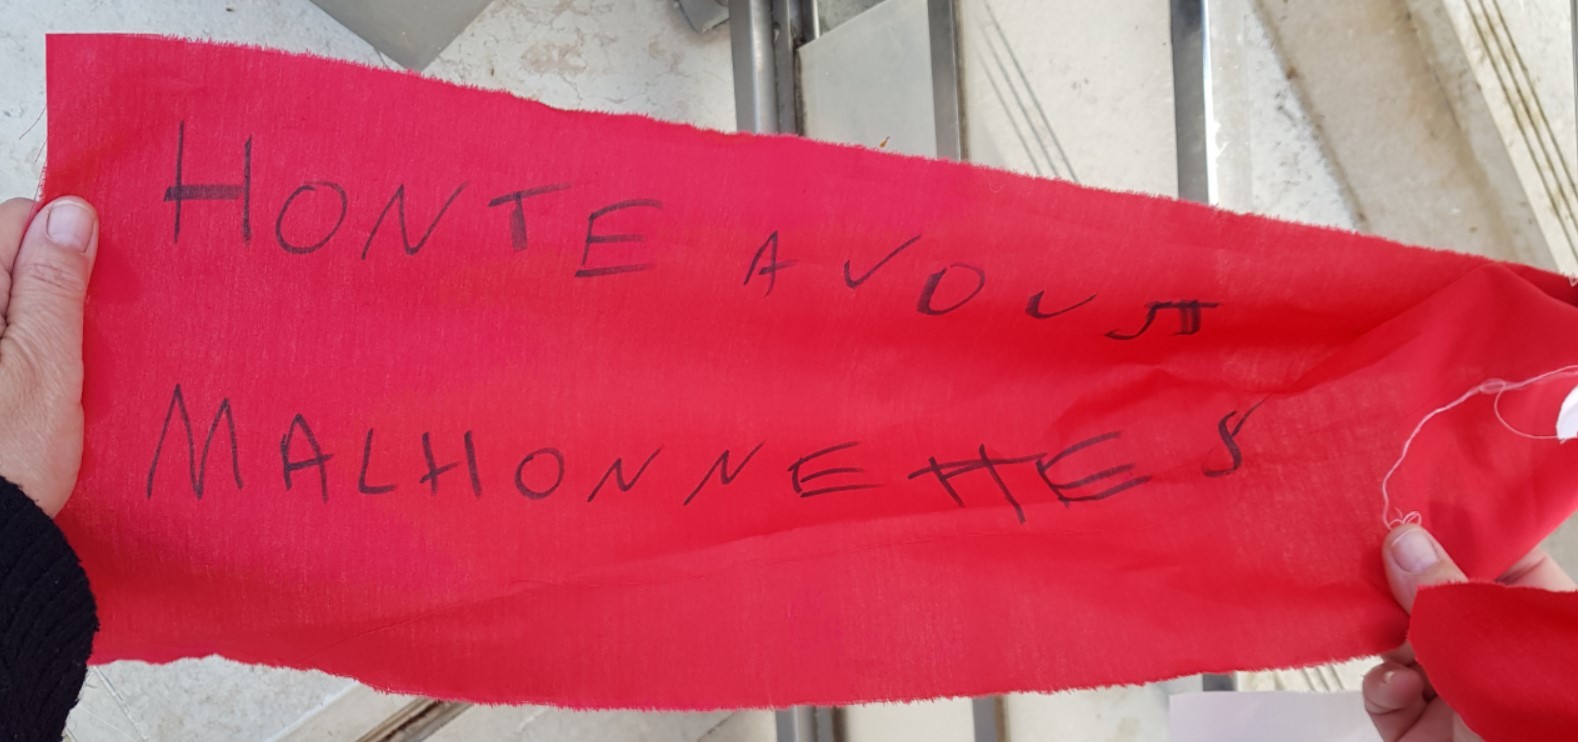 HONTE A VOUS
MALHONNETTES